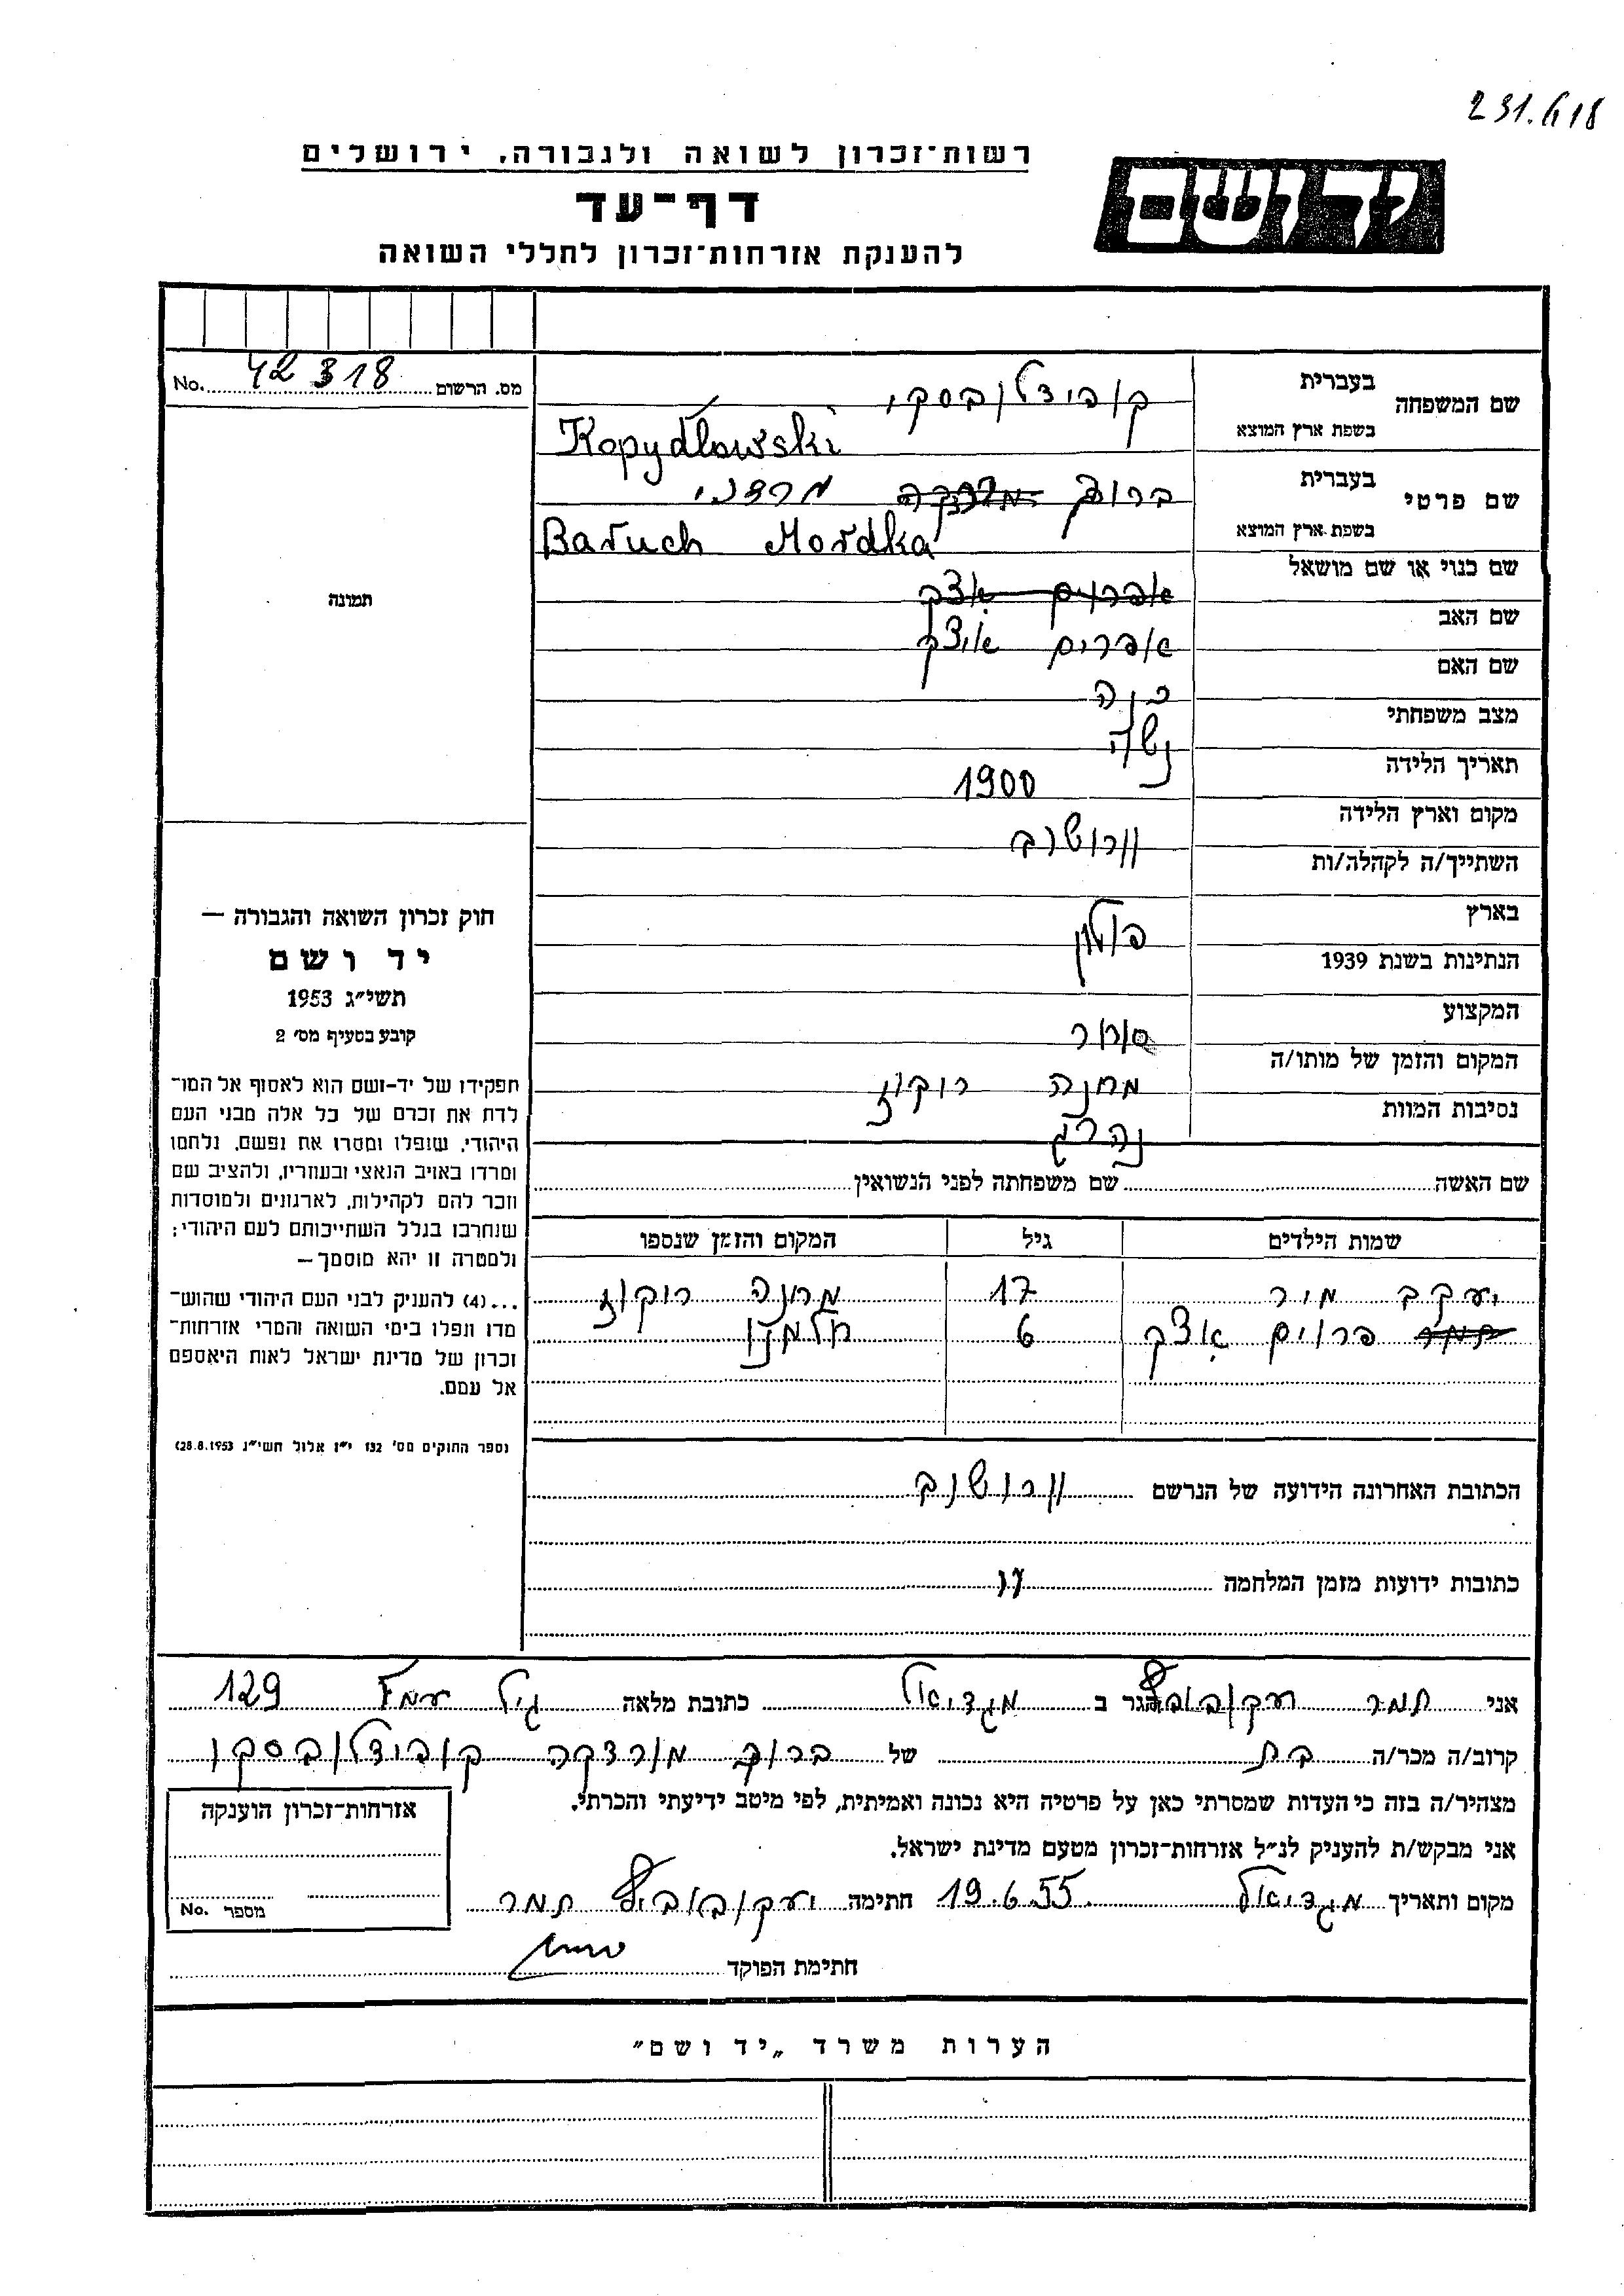 231.618
רשות־זכרון לשואה ולגבורה, ירושלים
דף־עד
להענקת אזרחות־זכרון לחללי השואה
יד ושם
מס. הרשום 42318 No.
שם המשפחה
בעברית קופידלובסקי
בשפת ארץ המוצא Kopydłowski
שם פרטי
בעברית ברוך מרדכי
בשפת ארץ המוצא Baruch Mordka
שם כנוי או שם מושאל
שם האב אפרים איצק
שם האם
מצב משפחתי נשוי
תאריך הלידה 1900
מקום וארץ הלידה
השתייך/ה לקהלה/ות
בארץ פולין
הנתינות בשנת 1939
המקצוע סוחר
המקום והזמן של מותו/ה מחנה
נסיבות המוות נהרג
תמונה
חוק זכרון השואה והגבורה —
יד ושם
תשי״ג 1953
קובע בסעיף מס׳ 2
תפקידו של יד-ושם הוא לאסוף אל המו־
לדת את זכרם של כל אלה מבני העם
היהודי, שנפלו ומסרו את נפשם, נלחמו
ומרדו באויב הנאצי ובעוזריו, ולהציב שם
וזכר להם לקהילות, לארגונים ולמוסדות
שנחרבו בגלל השתייכותם לעם היהודי;
ולמטרה זו יהא מוסמך—
...(4) להעניק לבני העם היהודי שהוש־
מדו ונפלו בימי השואה והמרי אזרחות־
זכרון של מדינת ישראל לאות היאספם
אל עמם.
(ספר החוקים מס׳ 132 י״ז אלול תשי״ג 28.8.1953)
שם האשה שם משפחתה לפני הנשואין
שמות הילדים גיל המקום והזמן שנספו
יעקב מיר 17 מחנה
פרוים איצק 6 חלמנו
הכתובת האחרונה הידועה של הנרשם
כתובות ידועות מזמן המלחמה
אני תמר יעקובוביץ הגר ב מגדיאל כתובת מלאה גיל עמל 129
קרוב/ה מכר/ה בת של ברוך מורדקה קופידלובסקי
מצהיר/ה בזה כי העדות שמסרתי כאן על פרטיה היא נכונה ואמיתית, לפי מיטב ידיעתי והכרתי.
אני מבקש/ת להעניק לנ״ל אזרחות־זכרון מטעם מדינת ישראל.
מקום ותאריך מגדיאל 19.6.55 חתימה יעקובוביץ תמר
חתימת הפוקד
אזרחות־זכרון הוענקה
מספר No.
הערות משרד „יד ושם״